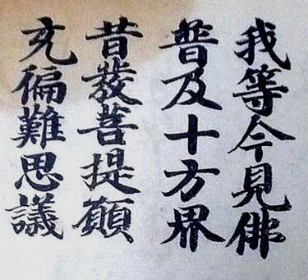 我等今見佛
普及十方界
昔發菩提願
充徧難思議